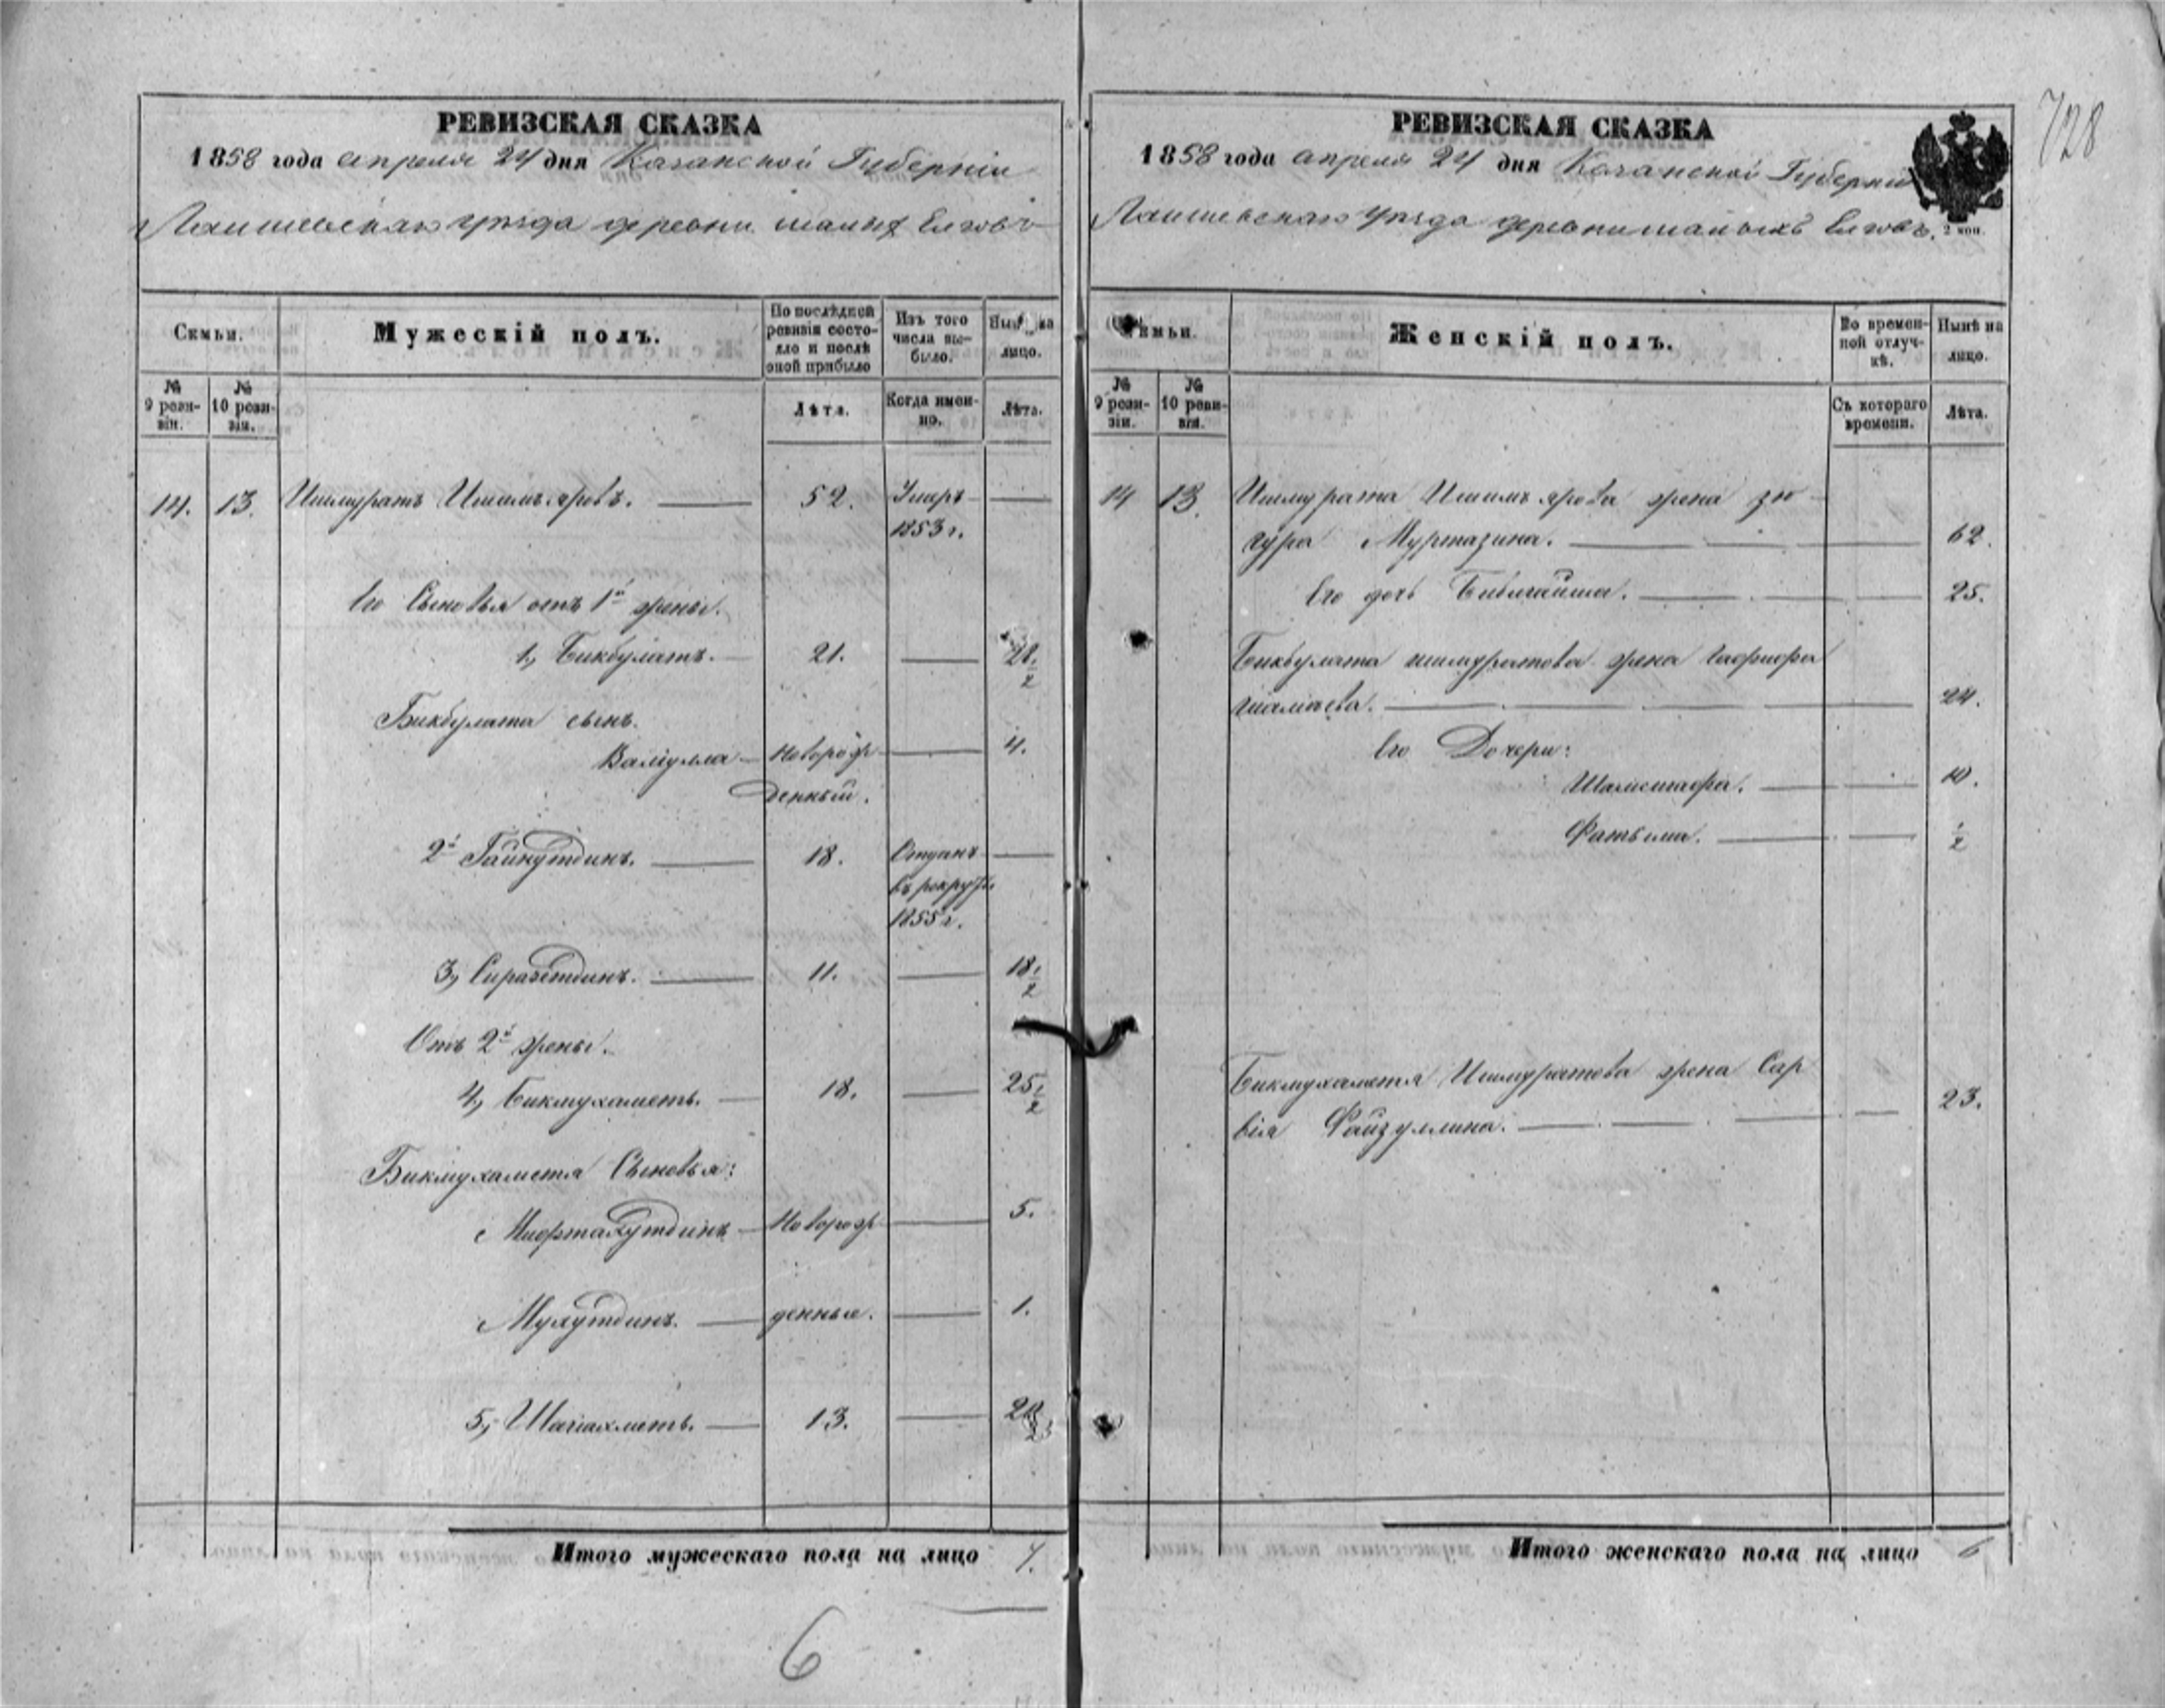 728
РЕВИЗСКАЯ СКАЗКА
1858 года апреля 24 дня Казанской Губерніи
Лаишевскаго уѣзда деревни шалих Елговъ
Семьи.
Мужескій полъ.
По послѣдней ревизіи состояло и послѣ оной прибыло
Изъ того числа выбыло.
Нынѣ на лицо.
№ 9 ревизіи.
№ 10 ревизіи.
Лѣта.
Когда именно.
Лѣта.
14. 13. Ишмуратъ Ишимъяровъ. 52. Умеръ
1853 г.
Его Сыновья отъ 1й жены.
1, Бикбулатъ. 21. 28 1/2
Бикбулата сынъ.
Валіулла Новорож 4.
денный.
2й Гайнутдинъ. 18. Отданъ
въ рекруты
1855 г.
3, Сиразетдинъ. 11. 18 1/2
Отъ 2й жены.
4, Бикмухаметь. 18. 25 1/2
Бикмухаметя Сыновья:
Новорож 5.
Мухутдинъ. денныя. 1.
5, Шагіахметь. 13. 20
Итого мужескаго пола на лицо 7.
6
РЕВИЗСКАЯ СКАЗКА
1858 года апреля 24 дня Казанской Губерніи
Лаишевскаго уѣзда деревни Елговъ.
2 коп.
Семьи.
Женскій полъ.
Во временной отлучкѣ.
Нынѣ на лицо.
№ 9 ревизіи.
№ 10 ревизіи.
Съ котораго времени.
Лѣта.
14 13. Ишмурата Ишимъярова жена зю
гура Муртазина. 62.
Его дочь Бибигайша. 25.
Бикбулата ишмуратова жена
24.
Его Дочери:
10.
Фатьима. 1/2
Бикмухаметя Ишмуратова жена Сар
вія Файзуллина. 23.
Итого женскаго пола на лицо 6